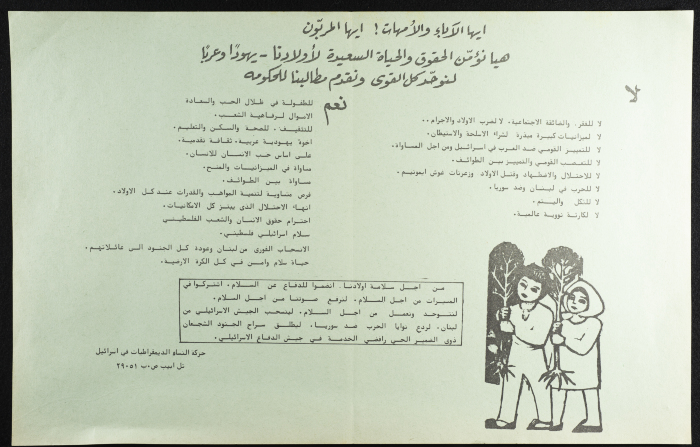 ايها الآباء والأمهات! ايها المربّون
هيا نؤمّن الحقوق والحياة السعيدة لأولادنا - يهودًا وعربًا
لنوحّد كل القوى ونقدم مطالبنا للحكومه
لا
لا للفقر. والضائقة الاجتماعية. لا لضرب الاولاد والاجرام..
لا لميزانيات كبيرة مبذرة لشراء الاسلحة والاستيطان.
لا للتمييز القومي ضد العرب في اسرائيل ومن اجل المساواة.
لا للتعصب القومي والتمييز بين الطوائف.
لا للاحتلال والاضطهاد وقتل الاولاد وزعرنات غوش ايمونيم.
لا للحرب في لبنان وضد سوريا.
لا للثكل واليتم.
لا لكارثة نووية عالمية.
نعم
للطفولة في ظلال الحب والسعادة
الاموال لرفاهية الشعب.
للتثقيف. للصحة والسكن والتعليم.
اخوة يهودية عربية. ثقافة تقدمية.
على اساس حب الانسان للانسان.
مساواة في الميزانيات والمنح.
مساواة بين الطوائف.
فرص متساوية لتنمية المواهب والقدرات عند كل الاولاد.
انهاء الاحتلال الذي يبتز كل الامكانيات.
احترام حقوق الانسان والشعب الفلسطيني
سلام اسرائيلي فلسطيني.
الانسحاب الفوري من لبنان وعودة كل الجنود الى عائلاتهم.
حياة سلام وامن في كل الكرة الارضية.
من اجل سلامة اولادنا. انضموا للدفاع عن السلام. اشتركوا في
المسيرات من اجل السلام. لنرفع صوتنا من اجل السلام.
لنتوحد ونعمل من اجل السلام. لينسحب الجيش الاسرائيلي من
لبنان. لردع نوايا الحرب ضد سوريا. ليطلق سراح الجنود الشجعان
ذوي الضمير الحي رافضي الخدمة في جيش الدفاع الاسرائيلي.
حركة النساء الديمقراطيات في اسرائيل
تل ابيب ص.ب ٢٩٠٥١